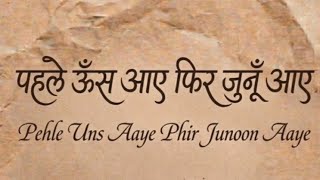 पहले ऊँस आए फिर जुनूँ आए
Pehle Uns Aaye Phir Junoon Aaye